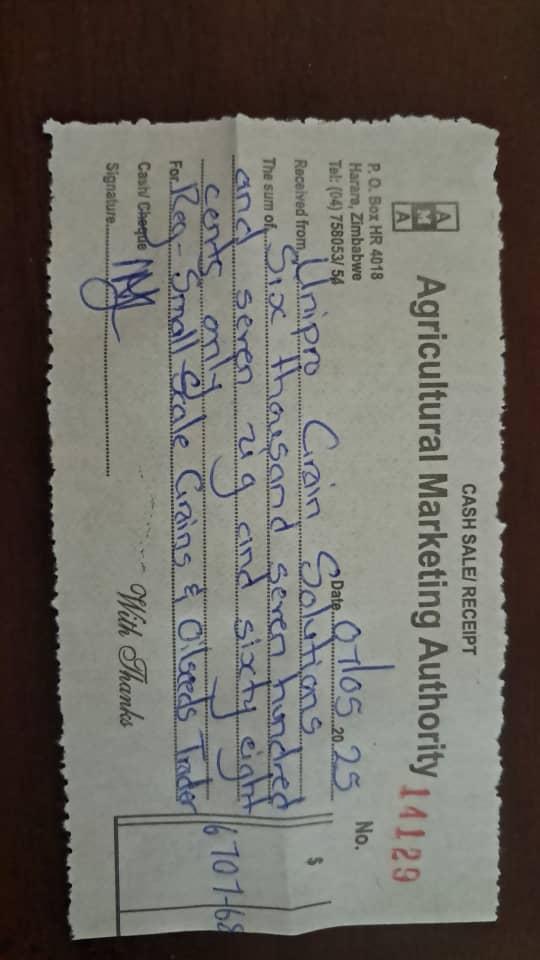 CASH SALE/ RECEIPT
A
M
A A
Agricultural Marketing Authority
14129
P. O. Box HR 4018
Harare, Zimbabwe
Tel: (04) 758053/ 54
No.
Date 07/05 20 25
Received from Unipro Grain Solutions
$
The sum of Six thousand seven hundred
and seven zig and sixty eight
cents only 6 707-68
For Reg - Small Scale Grains & Oilseeds Trader
Cash/ Cheque
With Thanks
Signature